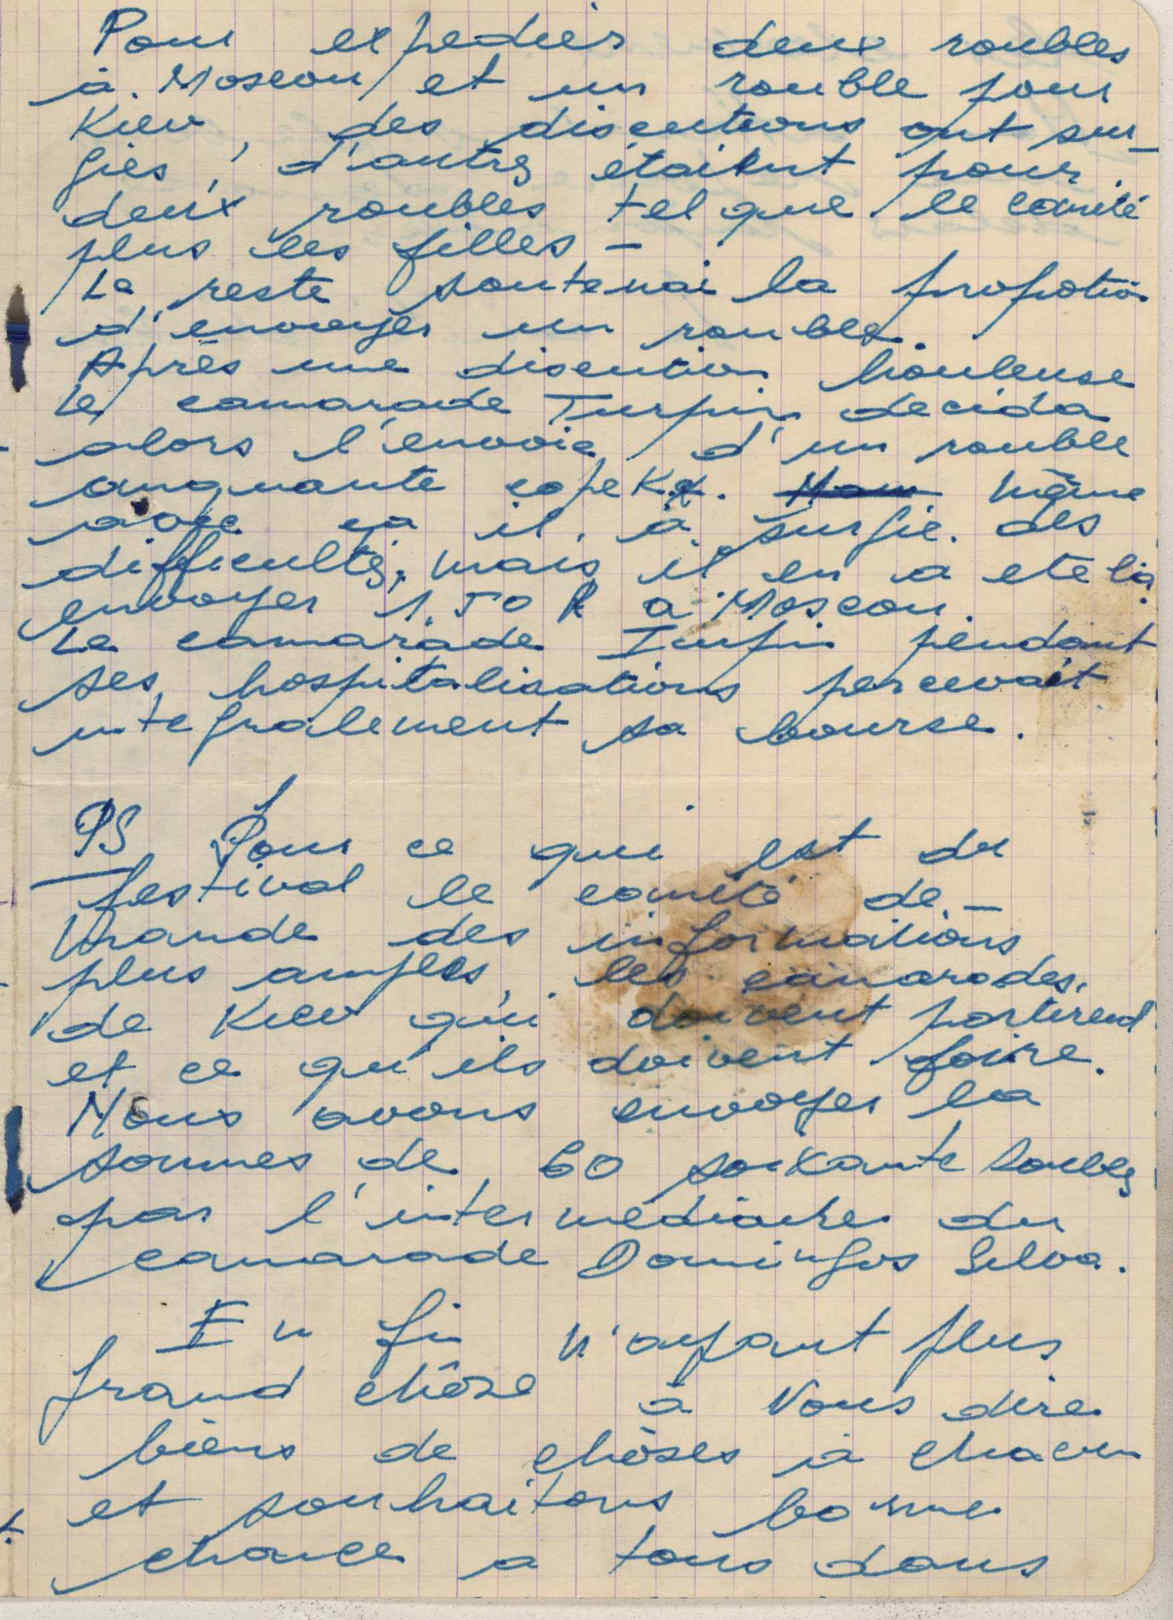 Pour expedier deux roubles
à Moscou et un rouble pour
Kiev, des discutions ont sur-
gies, d'autres étaient pour
deux roubles tel que le comité
plus les filles -
Le reste soutenai la propotion
d'envoyer un rouble.
Après une discution houleuse
le camarade Turpin decida
alors l'envoie d'un rouble
cinquante copeks. même
avec ça il a surgie des
difficultés, mais il en a ete là
envoyer 1,50 R a Moscou.
Le camarade Turpin pendant
ses hospitalisations percevait
integralement sa bourse.
PS Pour ce qui est du
festival le comité de-
mande des informations
plus amples, les camarades
de Kiev qui doivent partirent
et ce qu'ils doivent foire.
Nous avons envoyer la
sommes de 60 soixante roubles
par l'intermediaires du
camarade Domingos Silva.
En fin n'ayant plus
grand chôse à Vous dire
biens de chôses à chacun
et souhaitons bonne
chance a tous dans